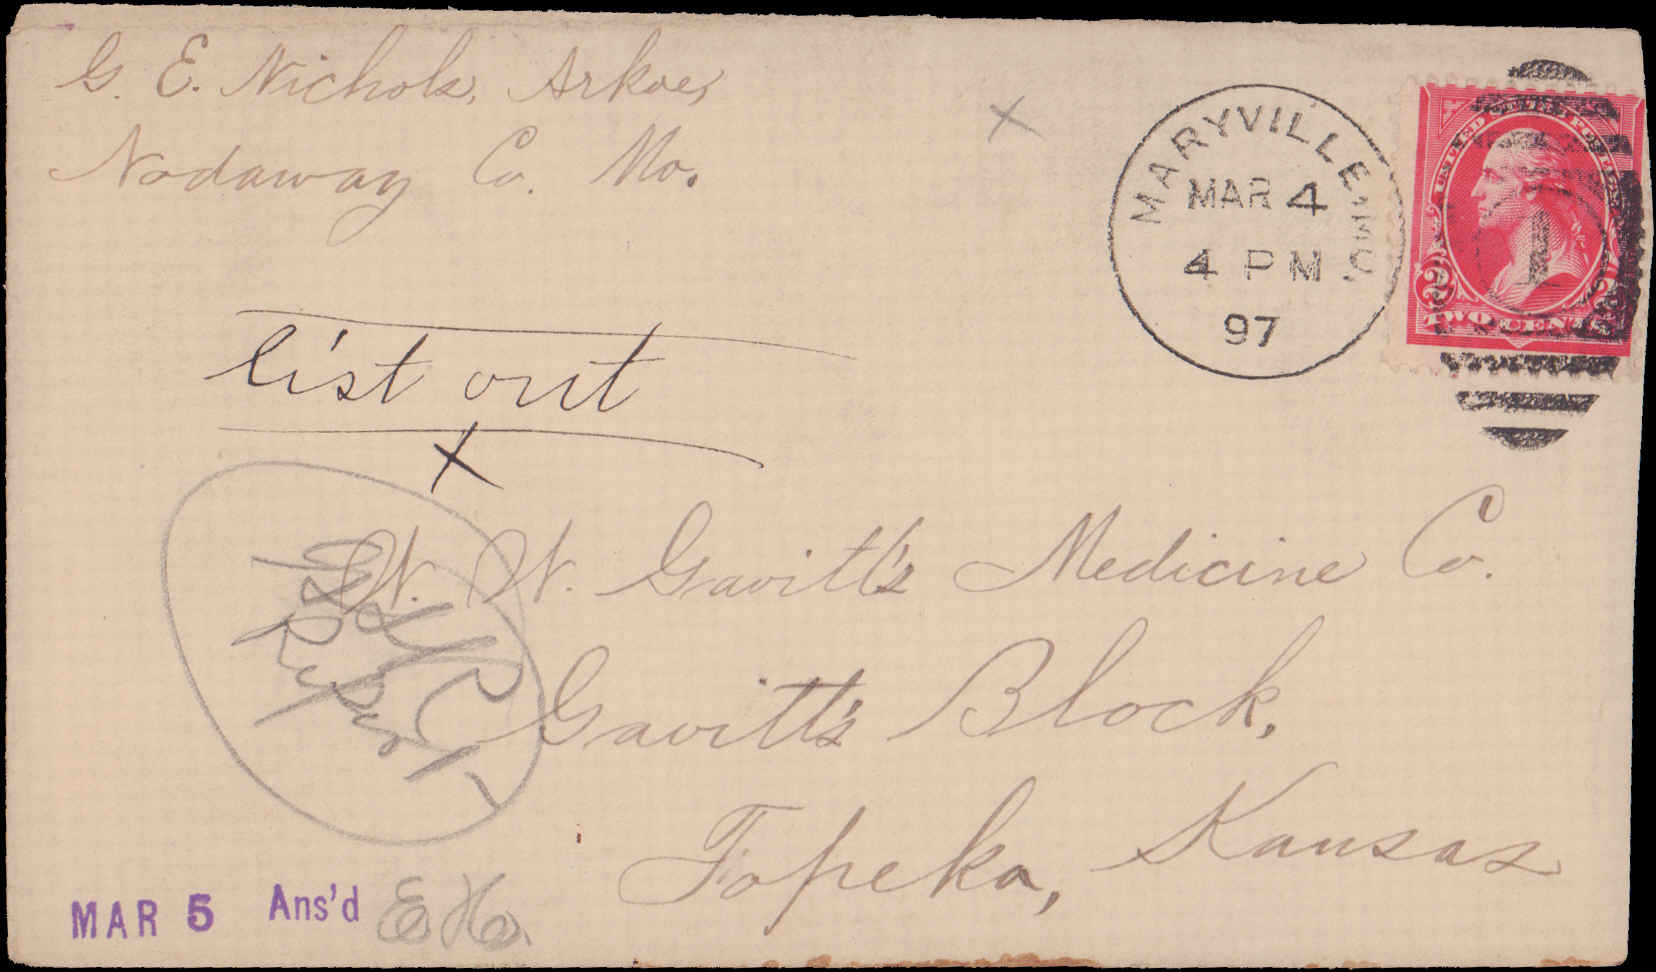 G. E. Nichols, Arkoe,
Nodaway Co. Mo.
MARYVILLE, MO.
MAR 4
4 PM
97
UNITED STATES POSTAGE
2 2
TWO CENTS
1
list out
x
W. W. Gavitt's Medicine Co.
Gavitt's Block,
Topeka, Kansas
MAR 5 Ans'd EH